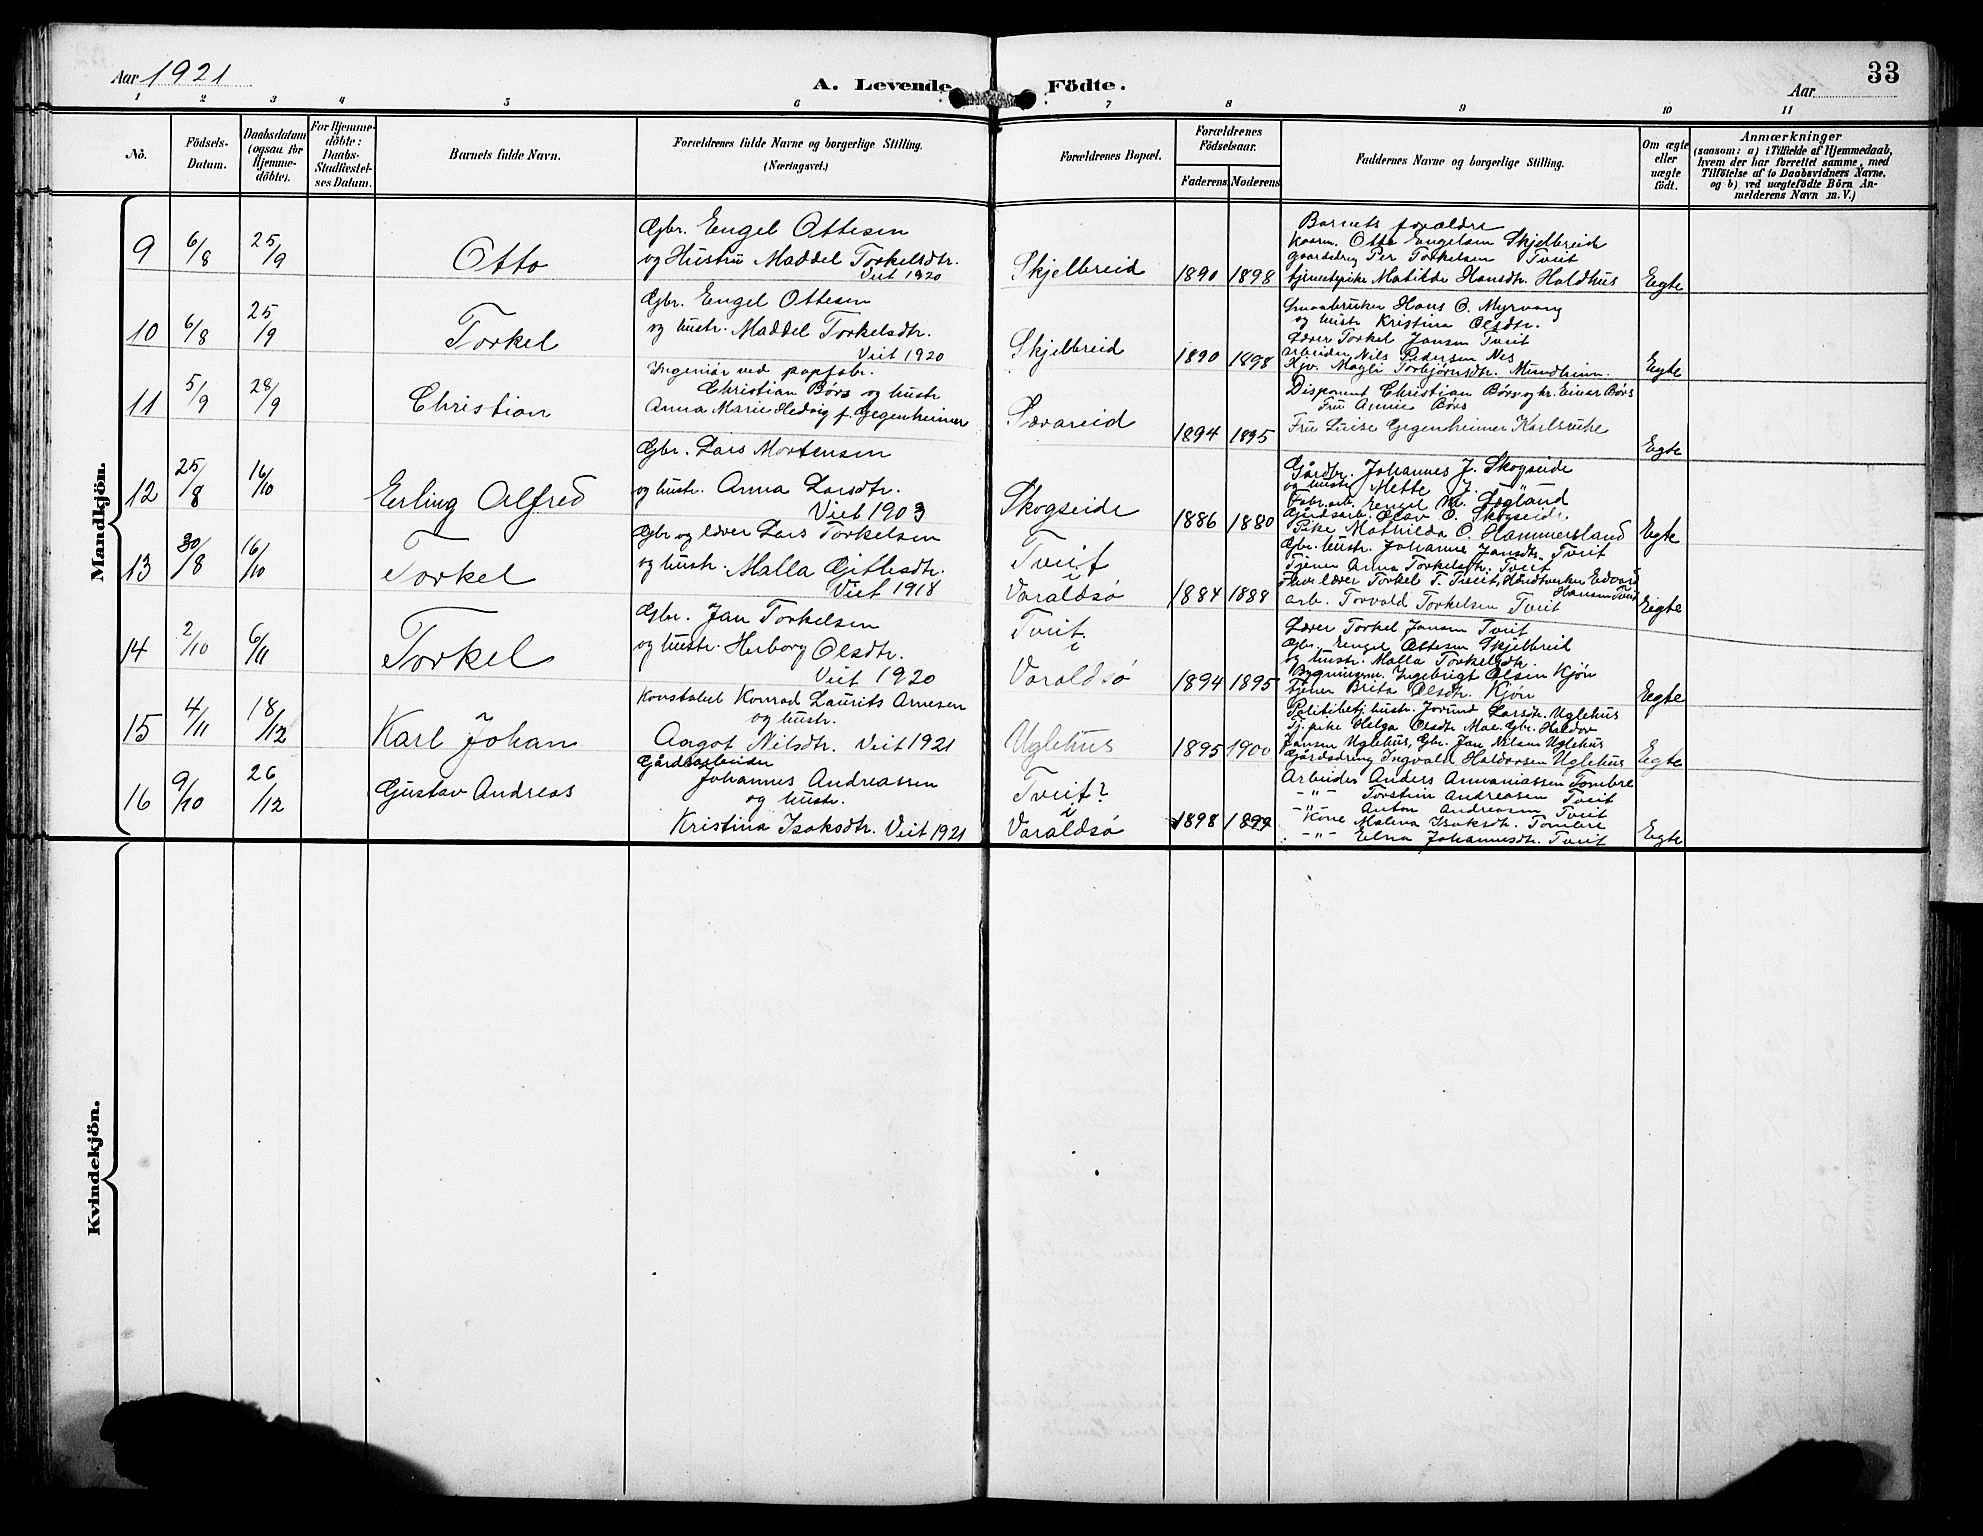 Aar 1921
A. Levende Födte.
33
Aar
1 2 3 4 5 6 7 8 9 10 11
No.
Födsels-Datum.
Daabsdatum (ogsaa for Hjemme-döbte).
For Hjemme-döbte: Daabs-Stadfæstel-ses Datum.
Barnets fulde Navn.
Forældrenes fulde Navne og borgerlige Stilling.
(Næringsvei.)
Forældrenes Bopæl.
Forældrenes Födselsaar.
Faderens. Moderens.
Faddernes Navne og borgerlige Stilling.
Om ægte eller uægte födt.
Anmærkninger
(saasom: a) i Tilfælde af Hjemmedaab, hvem der har forrettet samme, med Tilföielse af to Daabsvidners Navne. og b) ved uægtefödte Börn An-melderens Navn m. V.)
Mandkjön.
9 6/8 25/9 Otto
Gbr. Engel Ottesen
og Hustru Maddel Torkelsdtr.
Viet 1920
Skjelbreid 1890 1898
Barnets forældre
Otto Engelsen Skjelbreid
Per Torkelsen Tveit
tjenestepike Matilde Hansdtr. Holdhus
Egte
10 6/8 25/9 Torkel
Gbr. Engel Ottesen
og hustr. Maddel Torkelsdtr.
Viet 1920
Skjelbreid 1890 1898
Smaabruker Hans O. Myrvang
og hustr Kristina Olsdtr.
Lærer Torkel Jansen Tveit
arbeider Nils Pedersen Nes
Magli Torbjørnsdtr. Mundheim.
Egte
11 5/9 28/9 Christian
Ingeniør ved papfabr.
Christian Børs og hustr
Anna Marie Hedvig f. Gegenheimer
Sævareid 1894 1895
Disponent Christian Børs og hr. Einar Børs
Fru Annie Børs
Fru Luise Gegenheimer Karlsruhe
Egte
12 25/8 16/10 Erling Alfred
Gbr. Lars Mortensen
og hustr. Anna Larsdtr.
Viet 1903
Skogseide 1886 1880
Gårdbr. Johannes J. Skogseide
og hustr Mette J. "
Fabr.arb. Engel M. Søgland
Gårdsarb. Olav O. Skogseide.
Pike Mathilda O. Hammersland
Egte
13 30/8 16/10 Torkel
Gbr og lærer Lars Torkelsen
og hustr. Malla Gitlesdtr.
Viet 1918
Tveit i Varaldsø 1884 1888
Gbr. hustr. Johanne Jansdtr. Tveit
Tjener Anna Torkelsdtr. Tveit
lærer Torkel T. Tveit, Håndtverker Edvard Hansen Tveit
arb. Torvald Torkelsen Tveit
Eigte
14 2/10 6/11 Torkel
Gbr. Jan Torkelsen
og hustr. Herborg Olsdtr.
Viet 1920
Tveit i Varaldsø 1894 1895
Lærer Torkel Jansen Tveit
Gbr. Engel Ottesen Skjelbreid
og hustr. Malla Torkelsdtr.
Bygningsm. Ingebrigt Olsen Kjøn
tjener Brita Olsdtr. Kjøn
Egte
15 4/11 18/12 Karl Johan
Konstabel Konrad Laurits Arnesen
og hustr.
Aagot Nilsdtr. Viet 1921
Uglehus 1895 1900
Politibetj. hustr. Jorund Larsdtr. Uglehus
Tj. pike Helga Olsdtr. Moe. Gbr. Haldor
Jansen Uglehus, Gbr. Jan Nilsen Uglehus
Gårdsdreng Ingvald Haldorsen Uglehus
Egte
16 9/10 26/12 Gustav Andreas
Gårdsarbeider
Johannes Andreassen
og hustr.
Kristina Isaksdtr. Viet 1921
Tveit? i Varaldsø 1898 1899
Arbeider Anders Amaniassen Tombre
-"- Torstein Andreasen Tveit
-"- Anton Andreasen Tveit
Kone Malena Isaksdtr. Tombre
-"- Elna Johannesdtr. Tveit
Egte
Kvindekjön.